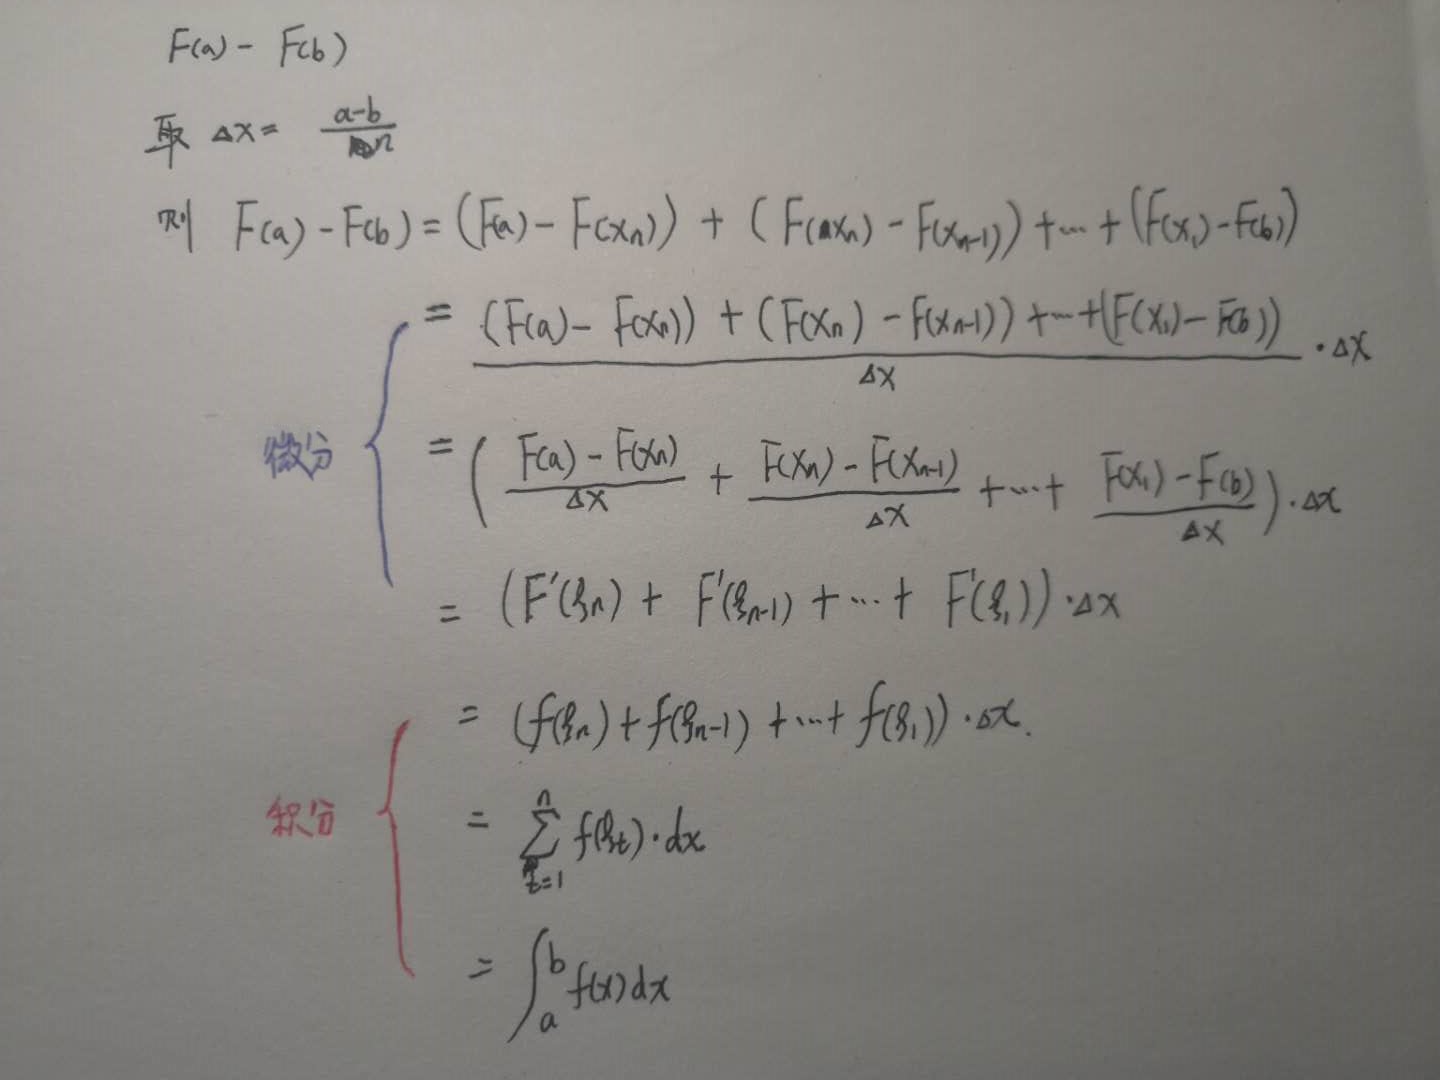 F(a) - F(b)
取 Δx = (a-b)/n
则 F(a) - F(b) = (F(a) - F(xₙ)) + (F(xₙ) - F(xₙ₋₁)) + ... + (F(x₁) - F(b))
= ((F(a) - F(xₙ)) + (F(xₙ) - F(xₙ₋₁)) + ... + (F(x₁) - F(b)))/Δx · Δx
微分
= ((F(a) - F(xₙ))/Δx + (F(xₙ) - F(xₙ₋₁))/Δx + ... + (F(x₁) - F(b))/Δx) · Δx
= (F'(ξₙ) + F'(ξₙ₋₁) + ... + F'(ξ₁)) · Δx
= (f(ξₙ) + f(ξₙ₋₁) + ... + f(ξ₁)) · Δx.
积分
= ∑ₜ₌₁ⁿ f(ξₜ) · dx
= ∫ₐᵇ f(x) dx